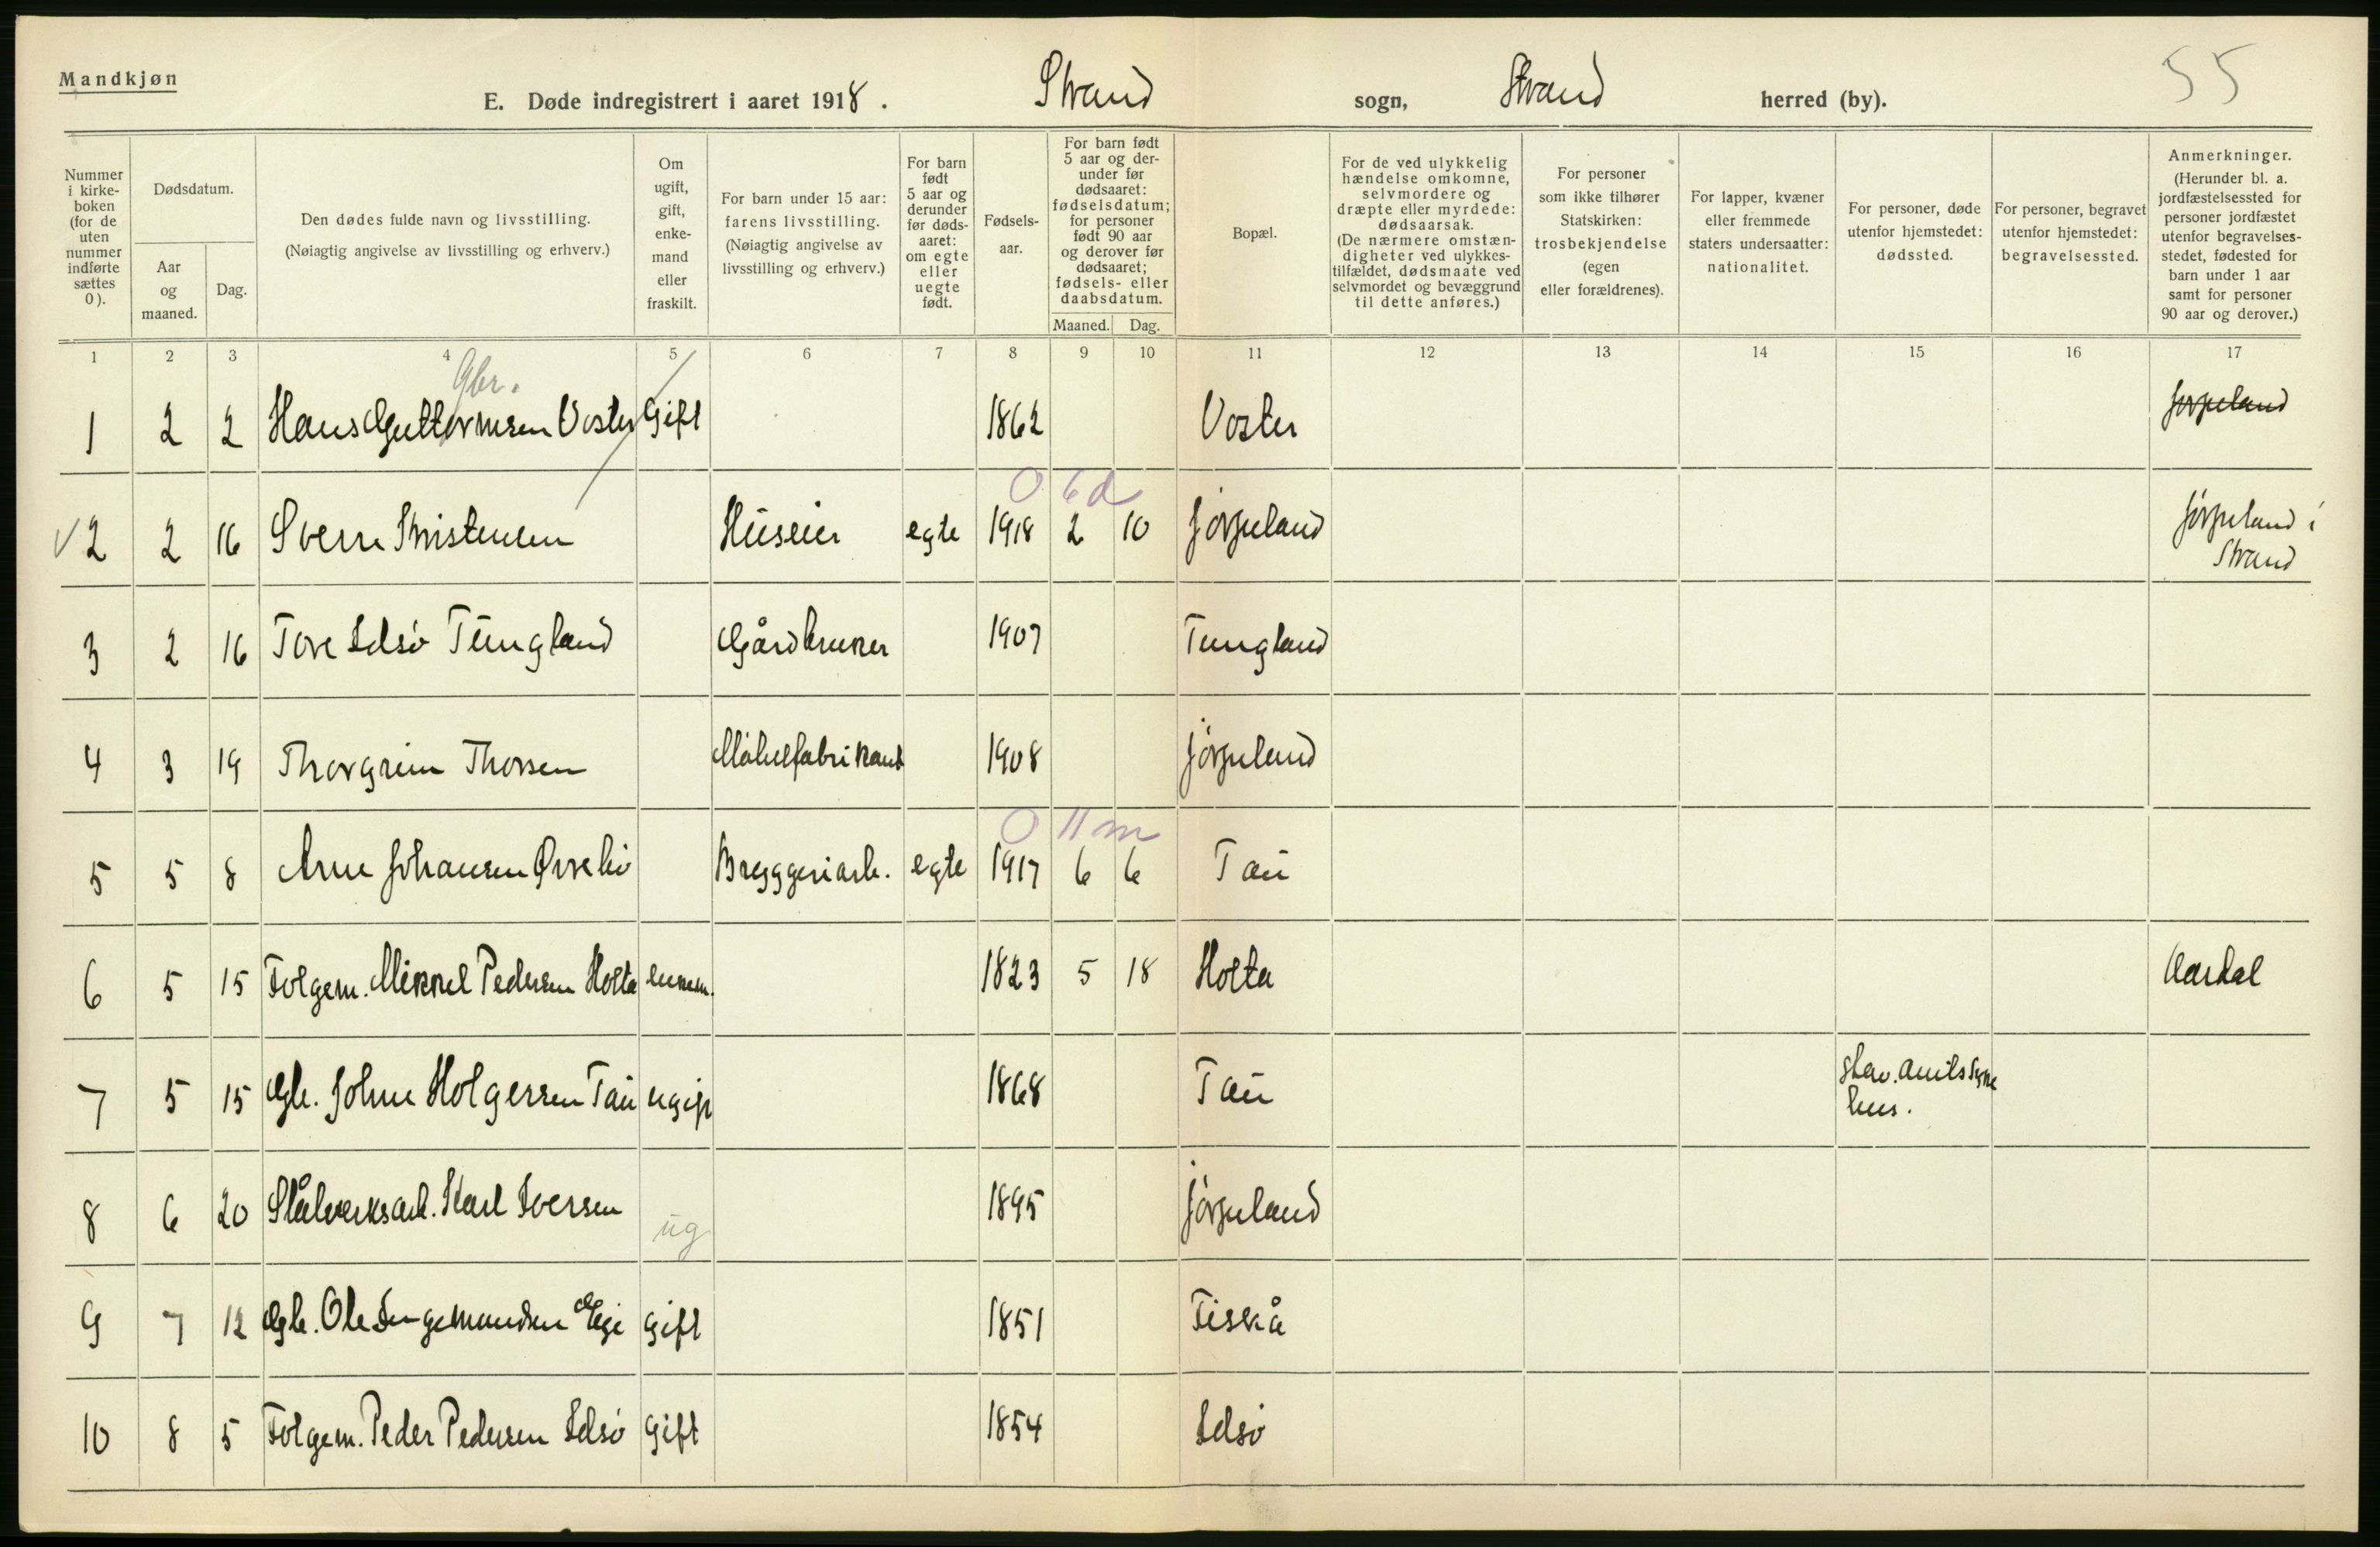 Mandkjøn
E. Døde indregistrert i aaret 1918. Strand sogn, Strand herred (by). 55
Nummer i kirke- boken (for de uten nummer indførte sættes 0).
Dødsdatum.
Aar og maaned.
Dag.
Den dødes fulde navn og livsstilling.
(Nøiagtig angivelse av livsstilling og erhverv.)
Om ugift, gift, enke- mand eller fraskilt.
For barn under 15 aar: farens livsstilling. (Nøiagtig angivelse av livsstilling og erhverv.)
For barn født 5 aar og derunder før døds- aaret: om egte eller uegte født.
Fødsels- aar.
For barn født 5 aar og der- under før dødsaaret: fødselsdatum; for personer født 90 aar og derover før dødsaaret; fødsels- eller daabsdatum.
Maaned. Dag.
Bopæl.
For de ved ulykkelig hændelse omkomne, selvmordere og dræpte eller myrdede: dødsaarsak. (De nærmere omstæn- digheter ved ulykkes- tilfældet, dødsmaate ved selvmordet og bevæggrund til dette anføres.)
For personer som ikke tilhører Statskirken: trosbekjendelse (egen eller forældrenes).
For lapper, kvæner eller fremmede staters undersaatter: nationalitet.
For personer, døde utenfor hjemstedet: dødssted.
For personer, begravet utenfor hjemstedet: begravelsessted.
Anmerkninger. (Herunder bl. a. jordfæstelsessted for personer jordfæstet utenfor begravelses- stedet, fødested for barn under 1 aar samt for personer 90 aar og derover.)
1 2 3 4 5 6 7 8 9 10 11 12 13 14 15 16 17
Gbr.
1 2 2 Hans Guttormsen Voster Gift 1862 Voster Jørpeland
0 6 d
√ 2 2 16 Sverre Kristensen Huseier egte 1918 2 10 Jørpeland Jørpeland i
Strand
3 2 16 Tore Idsø Tungland Gårdbruker 1907 Tungland
4 3 19 Thorgrim Thorsen Møbelfabrikant 1908 Jørpeland
0 11 m
5 5 8 Arne Johansen Bryggeriarb. egte 1917 6 6 Tau
6 5 15 Folgem. Mikkel Pedersen Holta enkem. 1823 5 18 Holta Aardal
7 5 15 Gb. Johne Holgersen Tau ugift 1868 Tau Stav. amts syke
hus.
8 6 20 Stålverksarb. Karl Iversen ug 1895 Jørpeland
9 7 12 Gb. Ole Ingemundsen Ege Gift 1851 Fiskå
10 8 5 Folgem. Peder Pedersen Idsø Gift 1854 Idsø